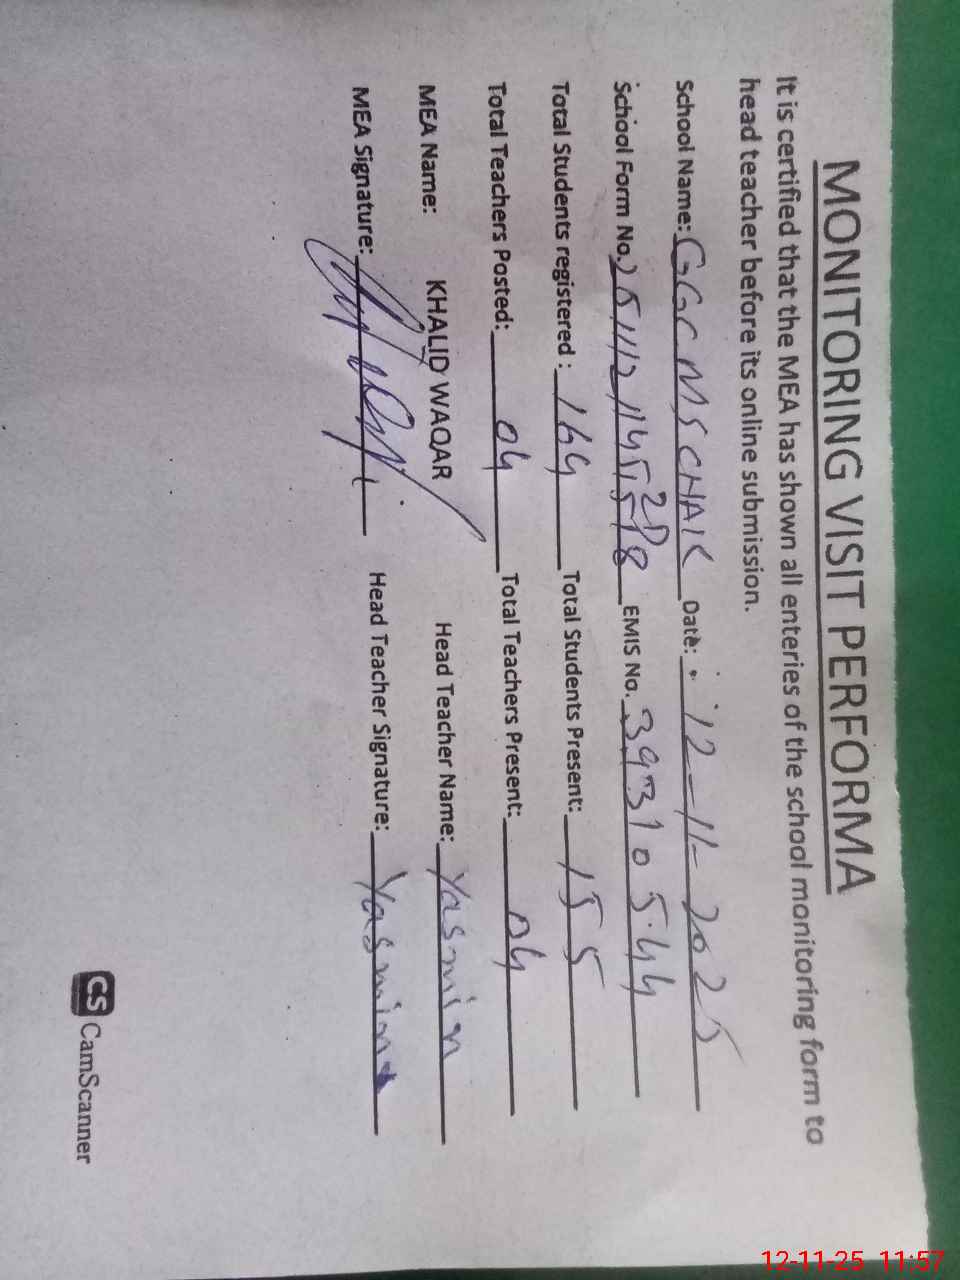 MONITORING VISIT PERFORMA
It is certified that the MEA has shown all enteries of the school monitoring form to
head teacher before its online submission.
School Name: GGCMS CHAK Date: 12-11-2025
School Form No. EMIS No. 39310544
Total Students registered : 164 Total Students Present: 155
Total Teachers Posted: 04 Total Teachers Present: 04
MEA Name: KHALID WAQAR Head Teacher Name: Yasmin
MEA Signature: Head Teacher Signature: Yasmin
CS CamScanner
12-11-25 11:57